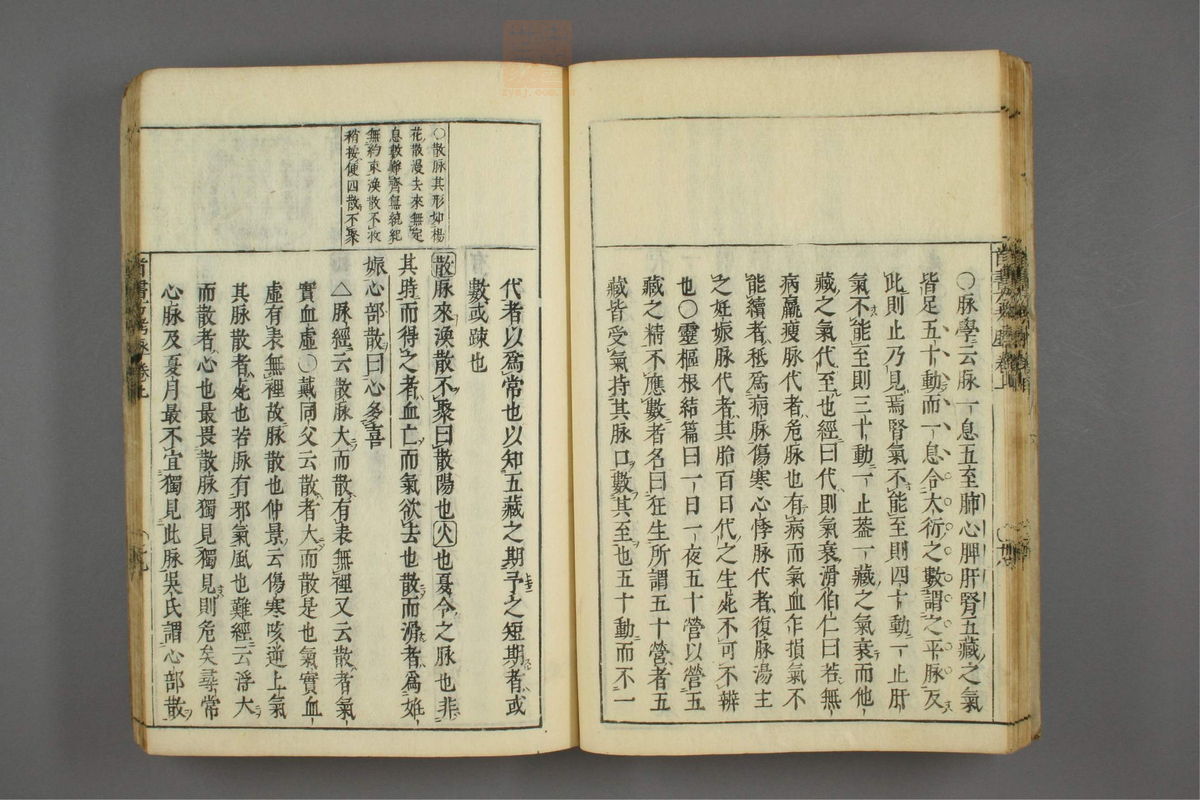 〇脉學云脉一息五至肺心脾肝腎五藏之氣
皆足五十動而一息合大衍之數謂之平脉反
此則止乃見焉腎氣不能至則四十動一止肝
氣不能至則三十動一止蓋一藏之氣衰而他
藏之氣代至也經曰代則氣衰滑伯仁曰若無
病羸瘦脉代者危脉也有病而氣血乍損氣不
能續者秪爲病脉傷寒心悸脉代者復脉湯主
之妊娠脉代者其胎百日代之生死不可不辨
也〇靈樞根結篇曰一日一夜五十營以營五
藏之精不應數者名曰狂生所謂五十營者五
藏皆受氣持其脉口數其至也五十動而不一
代者以爲常也以知五藏之期予之短期者或
數或踈也
散脉來渙散不聚曰散陽也火也夏令之脉也非
其時而得之者血亡而氣欲去也散而滑者爲妊
娠心部散曰心多喜
△脉經云散脉大而散有表無裡又云散者氣
實血虛〇戴同父云散者大而散是也氣實血
虛有表無裡故脉散也仲景云傷寒咳逆上氣
其脉散者死也若脉有邪氣風也難經云浮大
而散者心也最畏散脉獨見獨見則危矣尋常
心脉及夏月最不宜獨見此脉吳氏謂心部散
〇散脉其形如楊
花散漫去來無定
息數難齊無統紀
無約束渙散不收
稍按便四散不聚